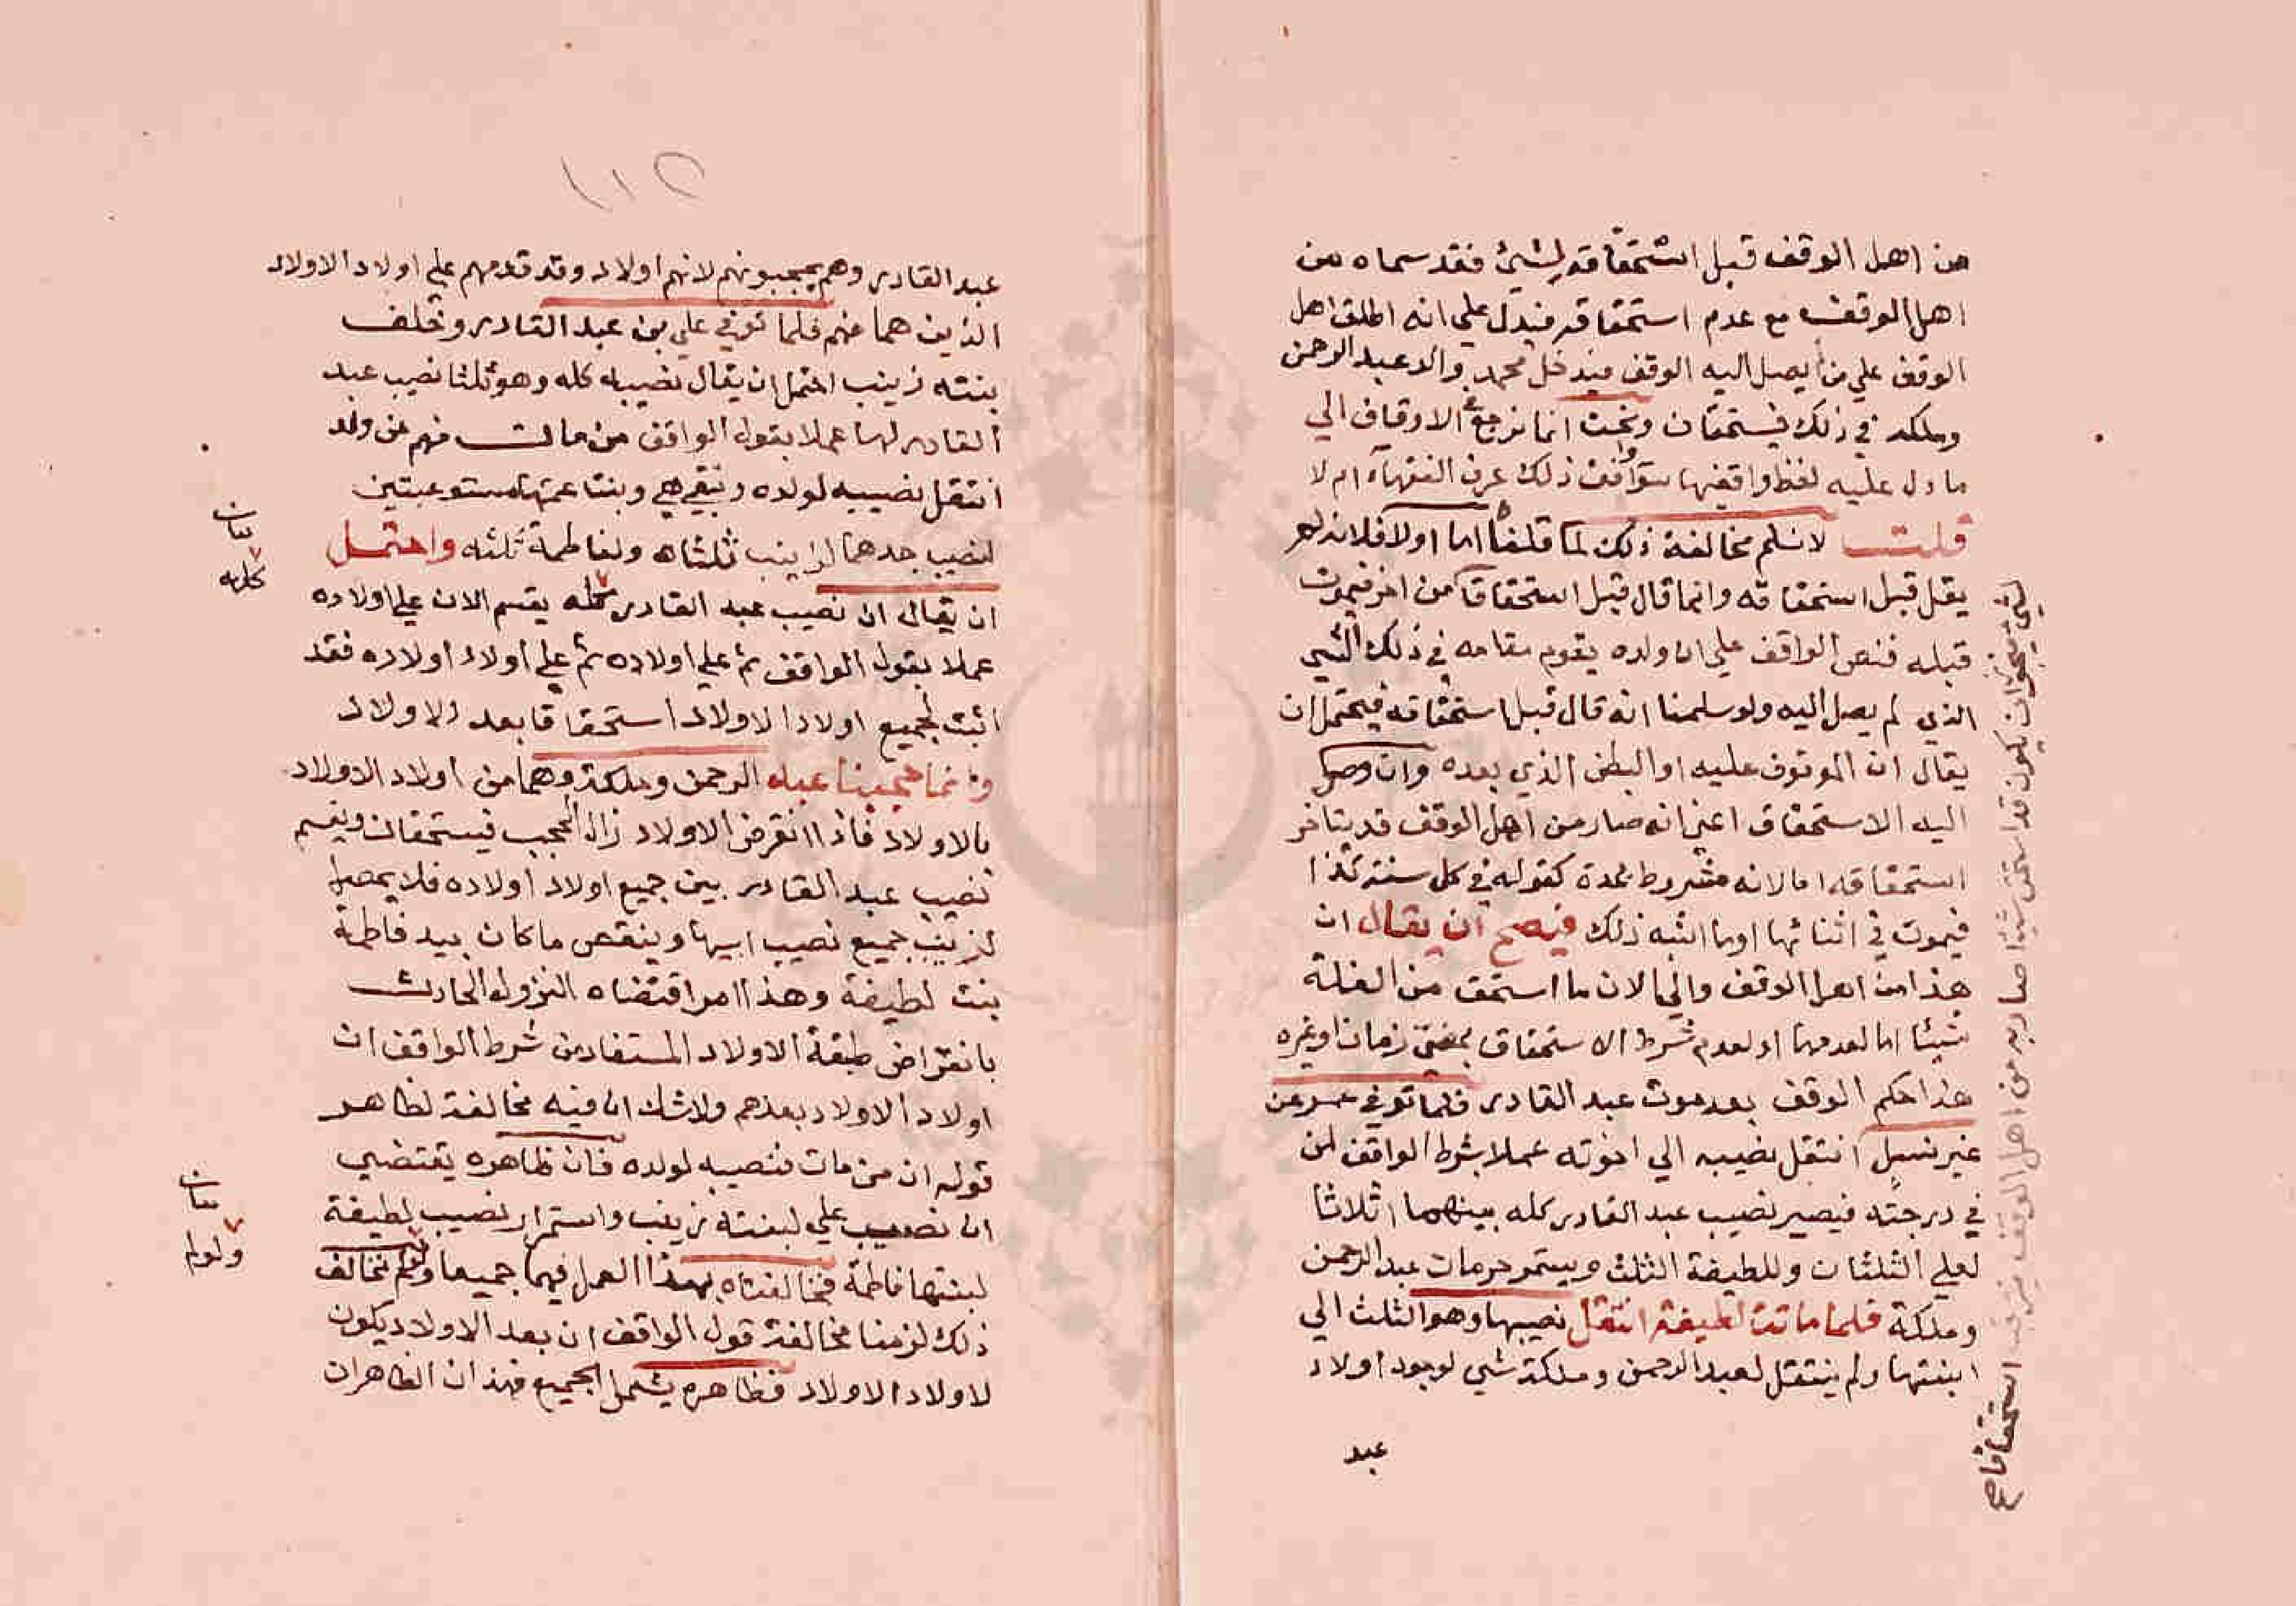 من اهل الوقف قبل استحقاقه لشئ فقد سماه من
اهل الوقف مع عدم استحقاقه فيدل علي انه اطلق اهل
الوقف علي من يصل اليه الوقف فيدخل محمد والد عبد الرحمن
وملكه في ذلك فيستحقان ونحن انما نرجع في الاوقاف الي
ما دل عليه لفظ واقفيها سوا وافق ذلك عرف الفقهاء ام لا
قلت لا نسلم مخالفة ذلك لما قلناه اما اولا فلانه لم
يقل قبل استحقاقه وانما قال قبل استحقاق من اخر فيموت
قبله فنص الواقف علي ان ولده يقوم مقامه في ذلك الشي
الذي لم يصل اليه ولو سلمنا انه قال قبل استحقاقه فيحتمل ان
يقال ان الموقوف عليه او البطن الذي بعده وان وصل
اليه الاستحقاق اعني انه صار من اهل الوقف قد يتاخر
استحقاقه اما لانه مشروط بمدة كقوله في كل سنة كذا
فيموت في اثنائها او ما اشبه ذلك فيصح ان يقال ان
هذا من اهل الوقف والي الان ما استحق من الغلة
شيئا اما لعدمها او لعدم شرط الاستحقاق بمضي زمان او غيره
هذا حكم الوقف بعد موت عبد القادر فلما توفي عمر عن
غير نسل انتقل نصيبه الي اخوته عملا بشرط الواقف لمن
في درجته فيصير نصيب عبد القادر كله بينهما اثلاثا
لعلي الثلثان وللطيفة الثلث ويستمر حرمان عبد الرحمن
وملكة فلما ماتت لطيفة انتقل نصيبها وهو الثلث الي
ابنتها ولم ينتقل لعبد الرحمن وملكة شي لوجود اولاد
عبد
لشي فيجوز ان يكون قد استحق شيئا صار به من اهل الوقف يترتب استحقاقا صح
١١٥
عبد القادر وهم يحجبونهم لانهم اولاد وقد قدمهم علي اولاد الاولاد
الذين هما منهم فلما توفي علي بن عبد القادر وخلف
بنته زينب احتمل ان يقال نصيبه كله وهو ثلثا نصيب عبد
القادر لها عملا بقول الواقف من مات منهم عن ولد
انتقل نصيبه لولده وتبقي هي وبنتا عمتها مستوعبتين
لنصيب جدهما لزينب ثلثاه ولفاطمة ثلثه واحتمل
ان يقال ان نصيب عبد القادر كله يقسم الان علي اولاده
عملا بقول الواقف ثم علي اولاده ثم علي اولاد اولاده فقد
اثبت لجميع اولاد الاولاد استحقاقا بعد الاولاد
وانما حجبنا عبد الرحمن وملكة وهما من اولاد الاولاد
بالاولاد فاذا انقرض الاولاد زال الحجب فيستحقان ويقسم
نصيب عبد القادر بين جميع اولاد اولاده فلا يحصل
لزينب جميع نصيب ابيها وينقص ما كان بيد فاطمة
بنت لطيفة وهذا امر اقتضاه النزول الحادث
بانقراض طبقة الاولاد المستفاد من شرط الواقف ان
اولاد الاولاد بعدهم ولا شك ان فيه مخالفة لظاهر
قوله ان من مات فنصيبه لولده فان ظاهره يقتضي
ان نصيب علي لبنته زينب واستمرار نصيب لطيفة
لبنتها فاطمة فخالفناه بهذا العمل فيهما جميعا ولو لم نخالف
ذلك لزمنا مخالفة قول الواقف ان بعد الاولاد يكون
لاولاد الاولاد فظاهره يشمل الجميع فهذان الظاهران
بيان
كله
بيان
ولو لم